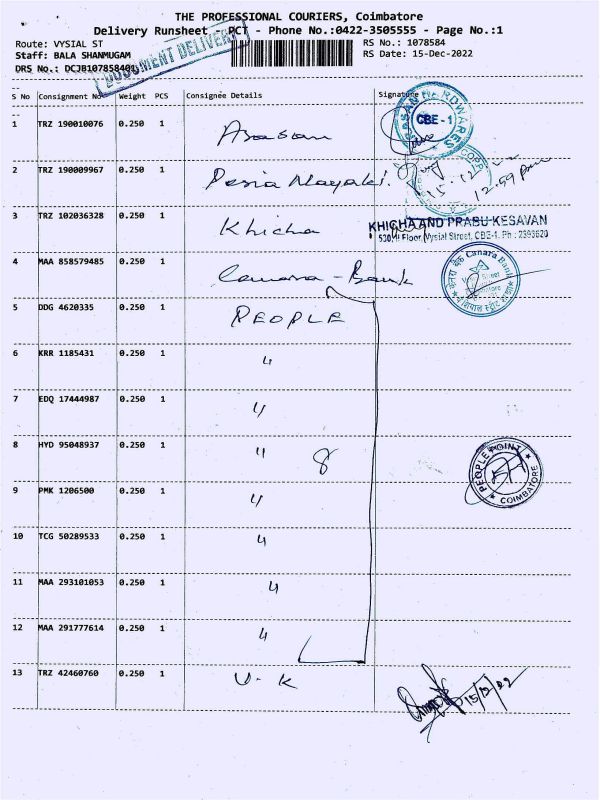 THE PROFESSIONAL COURIERS, Coimbatore
Delivery Runsheet - PCT - Phone No.:0422-3505555 - Page No.:1
Route: VYSIAL ST
RS No.: 1078584
Staff: BALA SHANMUGAM
RS Date: 15-Dec-2022
DRS No.: DCJB107858401
DOCUMENT DELIVERY
S No Consignment No Weight PCS Consignee Details Signature
1 TRZ 190010076 0.250 1 Arasan
HARDWARES CBE - 1
2 TRZ 190009967 0.250 1 Peria Nayaki
15.12
12.59 pm
3 TRZ 102036328 0.250 1 Khicha
KHICHA AND PRABU KESAVAN
Floor, Vysial Street, CBE-1. Ph : 2393620
4 MAA 858579485 0.250 1 Canara - Bank
Canara Bank
5 DDG 4620335 0.250 1 PEOPLE
6 KRR 1185431 0.250 1 "
7 EDQ 17444987 0.250 1 "
8 HYD 95048937 0.250 1 " 8
PEOPLE POINT COIMBATORE
9 PMK 1206500 0.250 1 "
10 TCG 50289533 0.250 1 "
11 MAA 293101053 0.250 1 "
12 MAA 291777614 0.250 1 "
13 TRZ 42460760 0.250 1 U-K